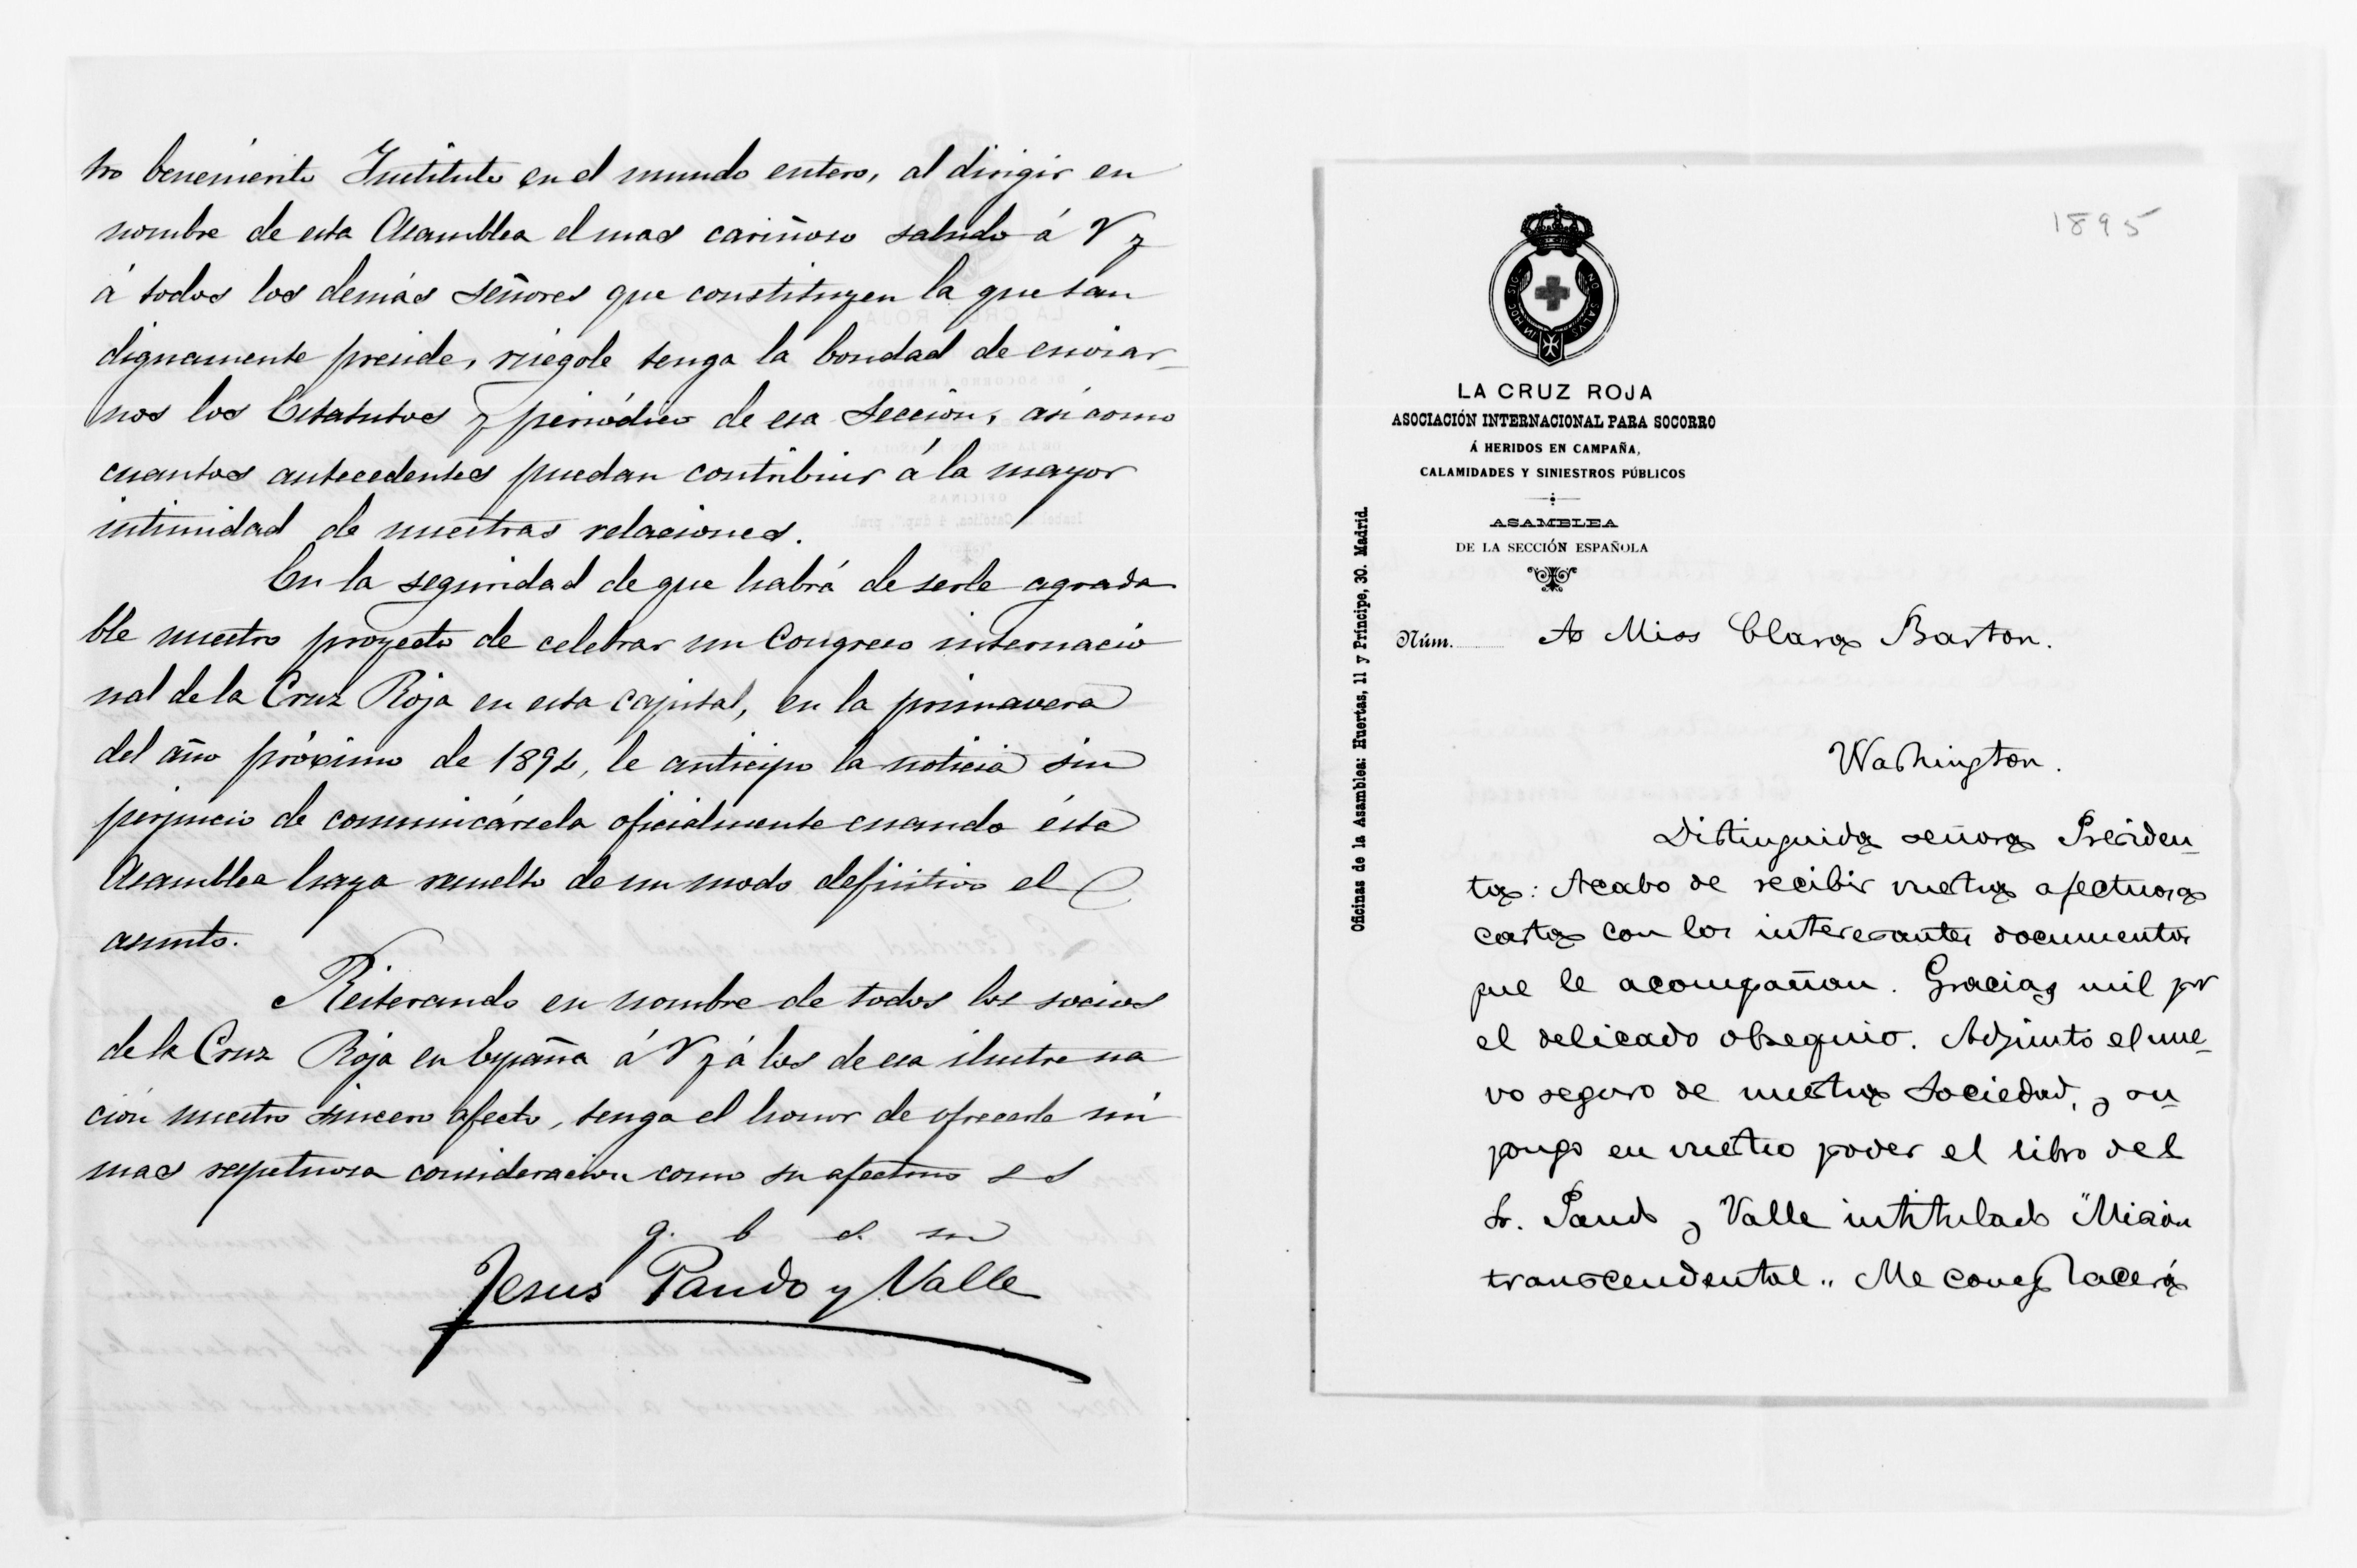 tro benemérito Instituto en el mundo entero, al dirigir en
nombre de esta Asamblea el mas cariñoso saludo á V y
á todos los demás señores que constituyen la que tan
dignamente preside, ruégole tenga la bondad de enviar-
nos los Estatutos y periódico de esa Sección, asi como
cuantos antecedentes puedan contribuir á la mayor
intimidad de nuestras relaciones.
En la seguridad de que habrá de serle agrada
ble nuestro proyecto de celebrar un Congreso internacio
nal de la Cruz Roja en esta capital, en la primavera
del año próximo de 1892, le anticipo la noticia sin
perjuicio de comunicársela oficialmente cuando ésta
Asamblea haya resuelto de un modo definitivo el
asunto.
Reiterando en nombre de todos los socios
de la Cruz Roja en España á V y á los de esa ilustre na
ción nuestro sincero afecto, tengo el honor de ofrecerle mi
mas respetuosa consideracion como su afectmo s s
q. b s. m
Jesus Pando y Valle
1895
IN HOC SIG NO SALUS
LA CRUZ ROJA
ASOCIACIÓN INTERNACIONAL PARA SOCORRO
Á HERIDOS EN CAMPAÑA,
CALAMIDADES Y SINIESTROS PÚBLICOS
ASAMBLEA
DE LA SECCIÓN ESPAÑOLA
Oficinas de la Asamblea: Huertas, 11 y Príncipe, 30. Madrid.
Núm. A Miss Clara Barton.
Washington.
Distinguida señora Presiden-
ta: Acabo de recibir vuestra afectuosa
carta con los interesantes documentos
que le acompañan. Gracias mil por
el delicado obsequio. Adjunto el nue-
vo seguro de nuestra Sociedad, y su
pongo en vuestro poder el libro del
Sr. Pando y Valle intitulado "Misión
transcendental". Me complacerá